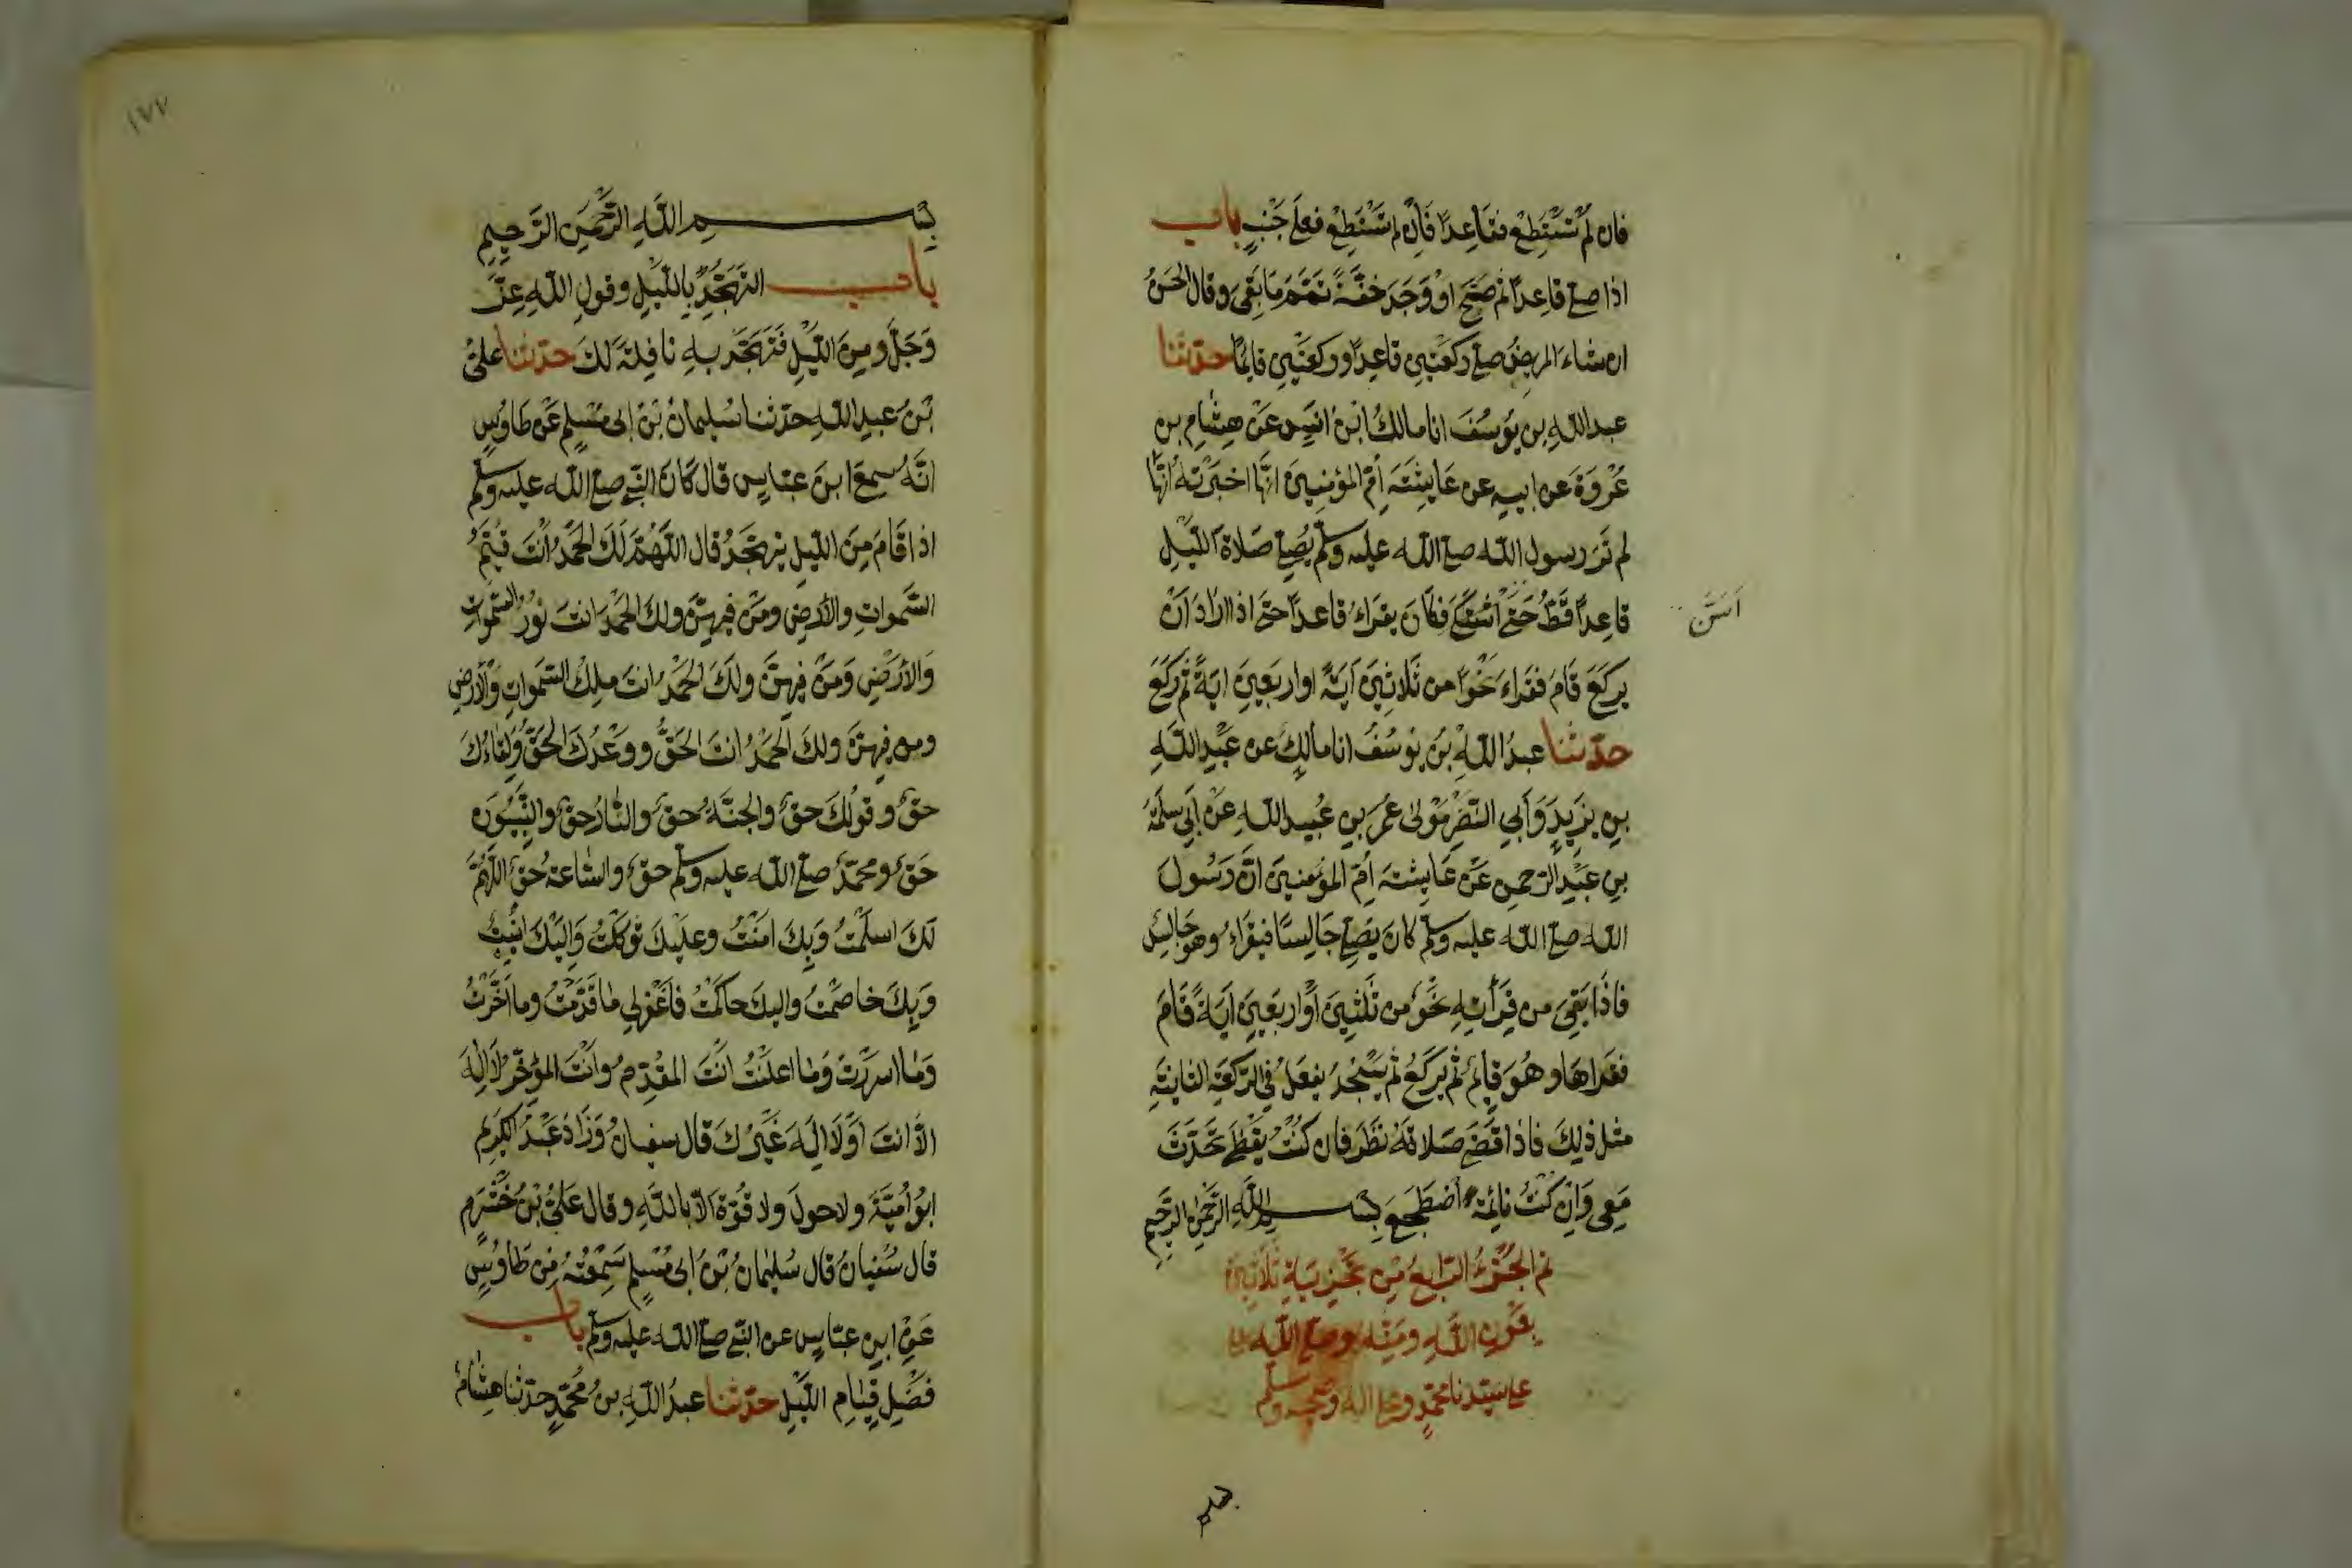 فان لم تستطع فقاعدا فان لم تستطع فعلى جنب باب
اذا صلى قاعدا ثم صح او وجد خفة تمم ما بقى وقال الحسن
ان شاء المريض صلى ركعتين قاعدا وركعتين قائما حدثنا
عبد الله بن يوسف انا مالك ابن انس عن هشام بن
عروة عن ابيه عن عايشة ام المؤمنين انها اخبرته انها
لم تر رسول الله صلى الله عليه وسلم يصلى صلاة الليل
قاعدا قط حتى فكان يقراء قاعدا حتى اذا اراد ان
اسن
يركع قام فقراء نحوا من ثلاثين اية او اربعين اية ثم ركع
حدثنا عبد الله بن يوسف انا مالك عن عبد الله
بن يزيد وابي النضر مولى عمر بن عبيد الله عن ابي سلمة
بن عبد الرحمن عن عايشة ام المؤمنين ان رسول
الله صلى الله عليه وسلم كان يصلى جالسا فيقراء وهو جالس
فاذا بقى من قرأته نحو من ثلثين او اربعين اية قام
فقراها وهو قايم ثم يركع ثم يسجد يفعل في الركعة الثانية
مثل ذلك فاذا قضى صلاته نظر فان كنت يقظى تحدث
معى وان كنت نائمة اضطجع بسم الله الرحمن الرحيم
تم الجزء الرابع من تجزية ثلاثين
بعون الله ومنه وصلى الله
على سيدنا محمد وعلى اله وصحبه وسلم
بسم
١٧٧
بسم الله الرحمن الرحيم
باب التهجد بالليل وقول الله عز
وجل ومن الليل فتهجد به نافلة لك حدثنا على
بن عبد الله حدثنا سليمان بن ابى مسلم عن طاوس
انه سمع ابن عباس قال كان النبي صلى الله عليه وسلم
اذا قام من الليل يتهجد قال اللهم لك الحمد انت قيم
السموات والارض ومن فيهن ولك الحمد انت نور السموات
والارض ومن فيهن ولك الحمد انت ملك السموات والارض
ومن فيهن ولك الحمد انت الحق ووعدك الحق ولقاءك
حق وقولك حق والجنة حق والنار حق والنبيون
حق ومحمد صلى الله عليه وسلم حق والساعة حق اللهم
لك اسلمت وبك امنت وعليك توكلت واليك انبت
وبك خاصمت واليك حاكمت فاغفر لي ما قدمت وما اخرت
وما اسررت وما اعلنت انت المقدم وانت المؤخر لا اله
الا انت او لا اله غيرك قال سفيان وزاد عبد الكريم
ابو امية ولا حول ولا قوة الا بالله وقال على بن خشرم
قال سفيان قال سليمان بن ابى مسلم سمعته من طاوس
عن ابن عباس عن النبي صلى الله عليه وسلم باب
فضل قيام الليل حدثنا عبد الله بن محمد حدثنا هشام